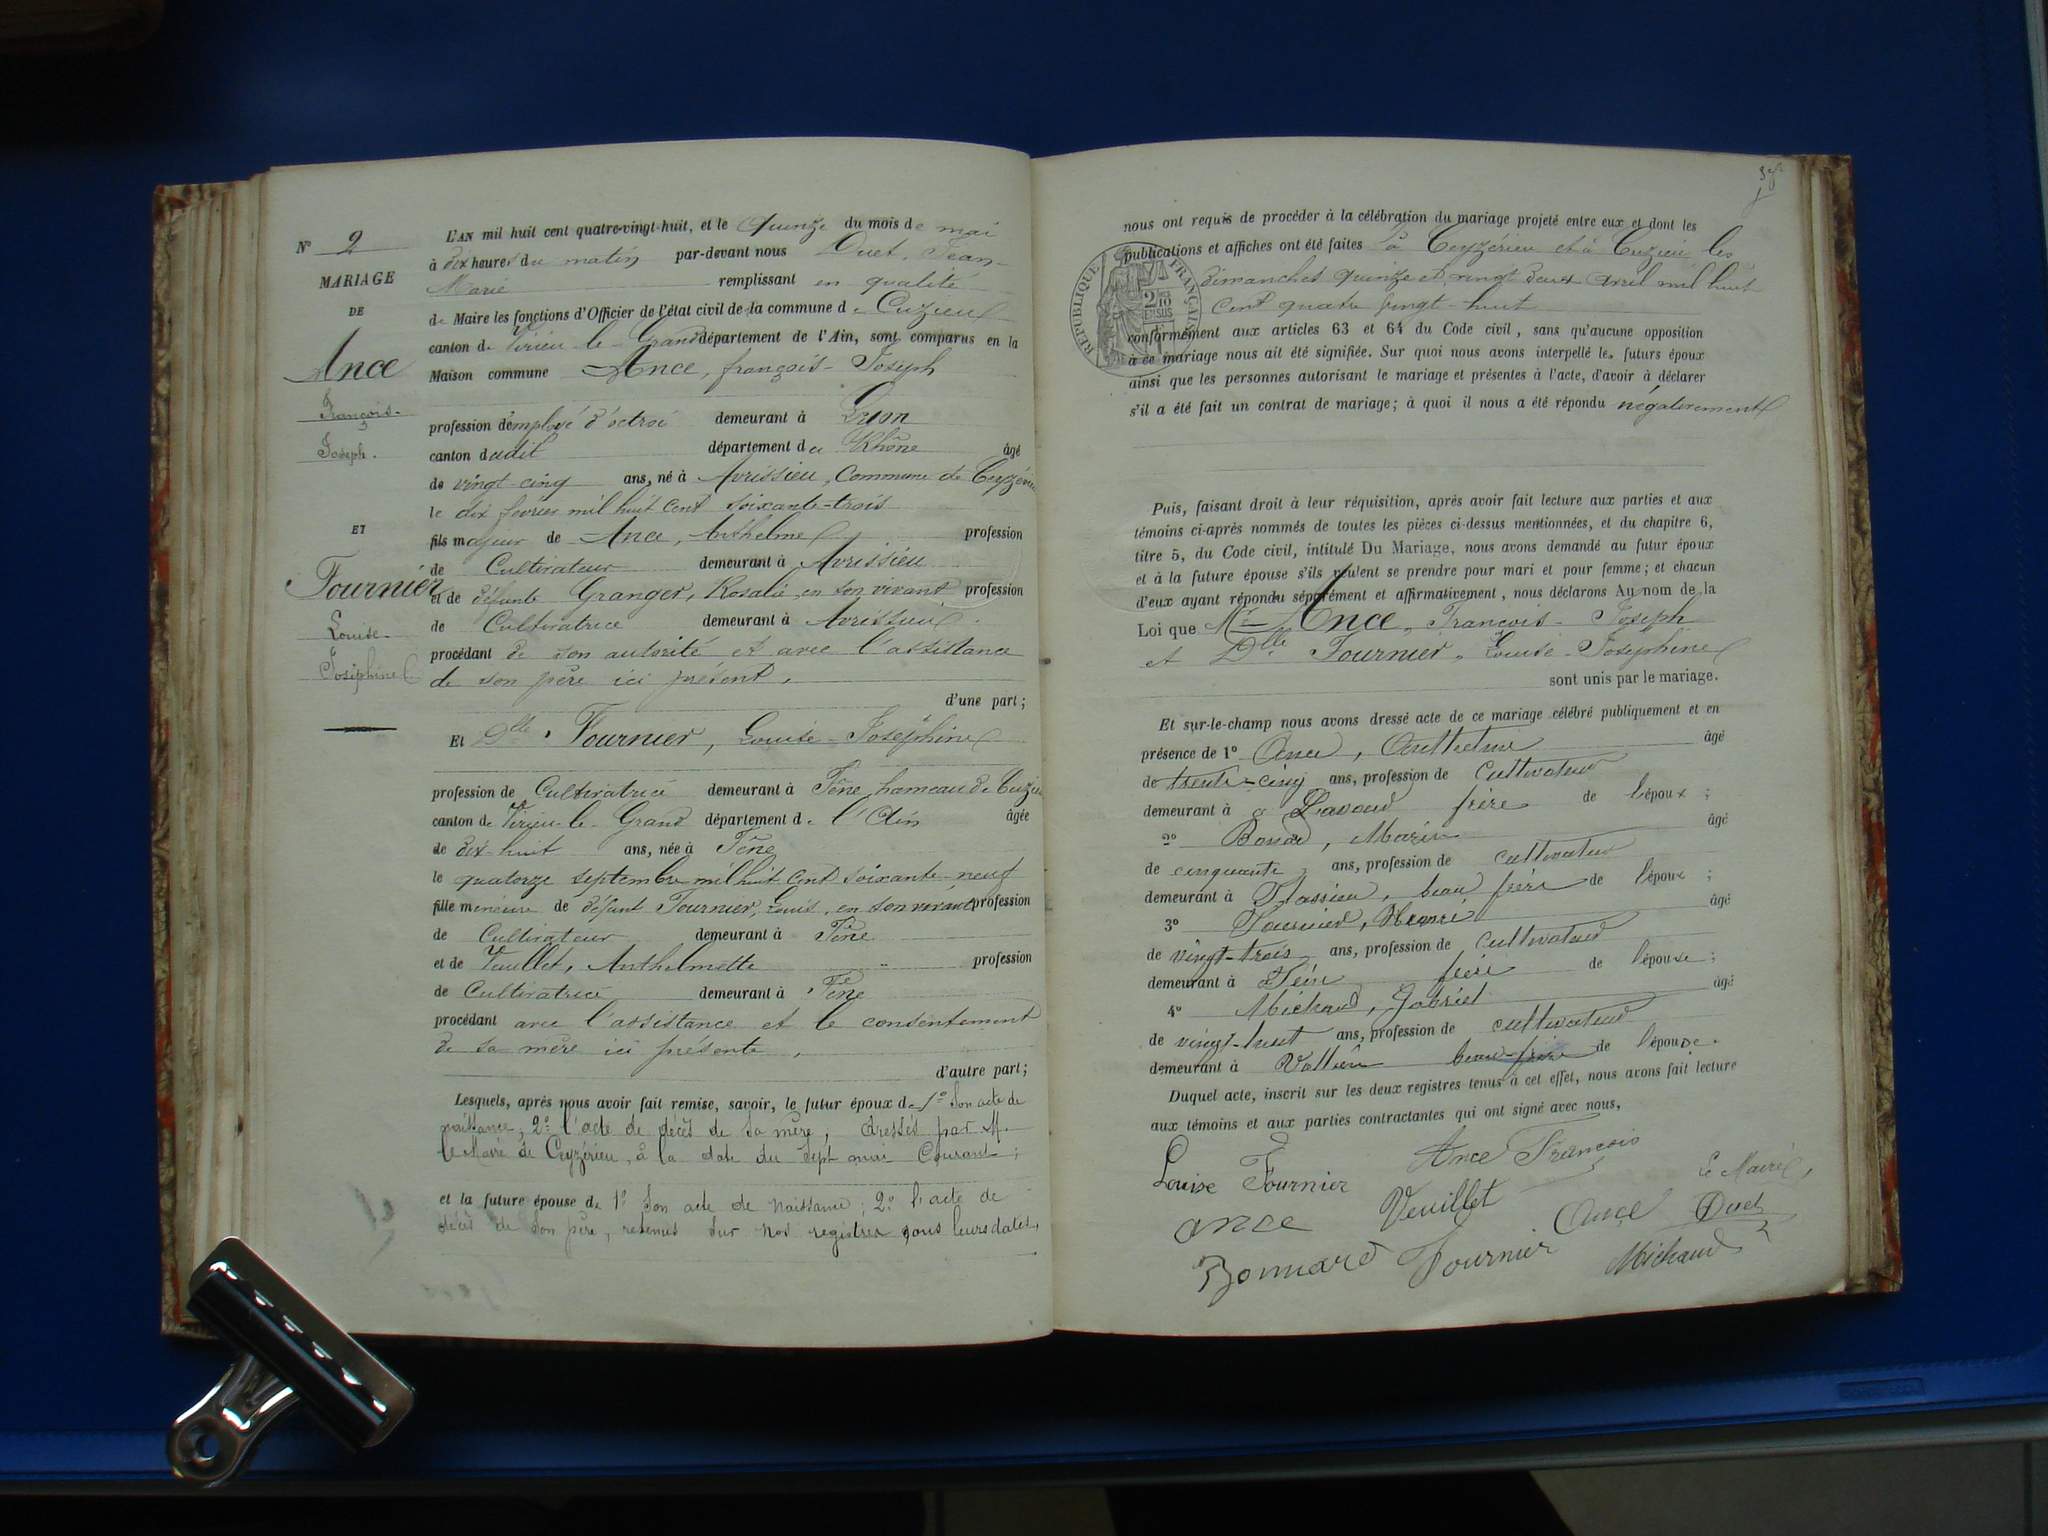 N° 2
MARIAGE
DE
Ance
François-
Joseph.
ET
Fournier
Louise-
Joséphine
L'AN mil huit cent quatre-vingt-huit, et le quinze du mois de mai
à dix heures du matin par-devant nous Duet, Jean-
Marie remplissant en qualité
de Maire les fonctions d'Officier de l'état civil de la commune de Cuzieu
canton de Virieu-le-Grand département de l'Ain, sont comparus en la
Maison commune Ance, françois-Joseph
profession d'employé d'octroi demeurant à Lyon
canton dudit département du Rhône âgé
de vingt cinq ans, né à Avrissieu, Commune de Ceyzérieu
le dix février mil huit cent soixante-trois
fils majeur de Ance, Anthelme profession
de Cultivateur demeurant à Avrissieu
et de défunte Granger, Rosalie, en son vivant profession
de Cultivatrice demeurant à Avrissieu.
procédant de son autorité et avec l'assistance
de son père ici présent,
d'une part;
Et Dlle Fournier, Louise-Joséphine
profession de Cultivatrice demeurant à Fène, hameau de Cuzieu
canton de Virieu-le-Grand département de l'Ain âgée
de dix-huit ans, née à Fène
le quatorze septembre mil huit cent soixante-neuf
fille mineure de défunt Fournier, Louis, en son vivant profession
de Cultivateur demeurant à Fène
et de Veuillet, Anthelmette profession
de Cultivatrice demeurant à Fène
procédant avec l'assistance et le consentement
de sa mère ici présente,
d'autre part;
Lesquels, après nous avoir fait remise, savoir, le futur époux de 1° Son acte de
naissance; 2° l'acte de décès de sa mère, dressés par M.
le Maire de Ceyzérieu, à la date du sept mai Courant;
et la future épouse de 1° Son acte de naissance; 2° l'acte de
décès de son père, retenus sur nos registres sous leurs dates,
nous ont requis de procéder à la célébration du mariage projeté entre eux et dont les
publications et affiches ont été faites à Ceyzérieu et à Cuzieu les
dimanches quinze et vingt deux avril mil huit
cent quatre vingt-huit
RÉPUBLIQUE FRANÇAISE
conformément aux articles 63 et 64 du Code civil, sans qu'aucune opposition
à ce mariage nous ait été signifiée. Sur quoi nous avons interpellé les futurs époux
ainsi que les personnes autorisant le mariage et présentes à l'acte, d'avoir à déclarer
s'il a été fait un contrat de mariage; à quoi il nous a été répondu négativement
Puis, faisant droit à leur réquisition, après avoir fait lecture aux parties et aux
témoins ci-après nommés de toutes les pièces ci-dessus mentionnées, et du chapitre 6,
titre 5, du Code civil, intitulé Du Mariage, nous avons demandé au futur époux
et à la future épouse s'ils veulent se prendre pour mari et pour femme; et chacun
d'eux ayant répondu séparément et affirmativement, nous déclarons Au nom de la
Loi que Mr Ance, François-Joseph
et Dlle Fournier, Louise-Joséphine
sont unis par le mariage.
Et sur-le-champ nous avons dressé acte de ce mariage célébré publiquement et en
présence de 1° Ance, Anthelme âgé
de trente-cinq ans, profession de cultivateur
demeurant à Lavours frère de l'époux;
2° Marin âgé
de cinquante ans, profession de cultivateur
demeurant à beau frère de l'époux;
3° Fournier, Henri âgé
de vingt-trois ans, profession de cultivateur
demeurant à Fène frère de l'épouse;
4° Michaud, Gabriel âgé
de vingt-huit ans, profession de cultivateur
demeurant à beau-frère de l'épouse.
Duquel acte, inscrit sur les deux registres tenus à cet effet, nous avons fait lecture
aux témoins et aux parties contractantes qui ont signé avec nous,
Louise Fournier Ance François Le Maire,
ance Veuillet Ance Duet
Bonnard Fournier Michaud